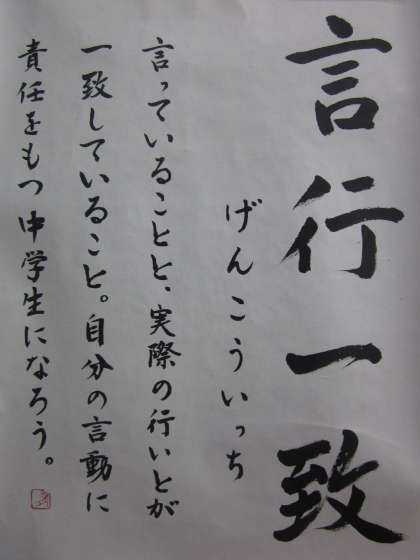 言行一致
げんこういっち
言っていることと、実際の行いとが
一致していること。自分の言動に
責任をもつ中学生になろう。